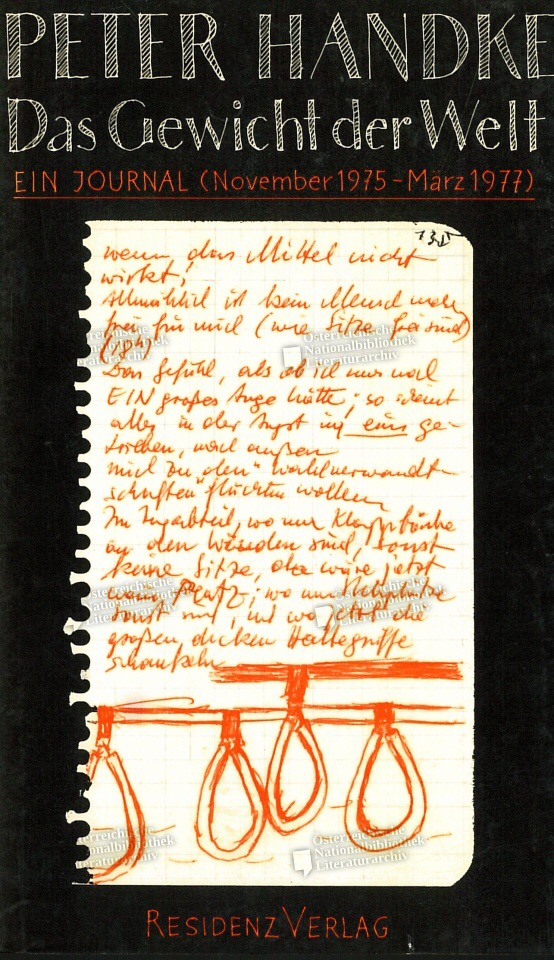 PETER HANDKE
Das Gewicht der Welt
EIN JOURNAL (November 1975 – März 1977)
131
wenn das Mittel nicht
wirkt;
Allmählich ist kein Mensch mehr
frei für mich (wie Sitze frei sind)
Das Gefühl, als ob ich nur noch
EIN großes Auge hätte; so scheint
alles in der Angst in eins ge-
, nach außen
mich zu den "Wahlverwandt-
schaften" flüchten wollen
Im Zugabteil, wo nur Klappbänke
an den Wänden sind, sonst
keine Sitze, da wäre jetzt
mein Platz; wo nur Stehplätze
sonst sind, und wo jetzt die
großen dicken Haltegriffe
schaukeln
Österreichische
Nationalbibliothek
Literaturarchiv
Österreichische
Nationalbibliothek
Literaturarchiv
Österreichische
Nationalbibliothek
Literaturarchiv
Österreichische
Nationalbibliothek
Literaturarchiv
Österreichische
Nationalbibliothek
Literaturarchiv
Österreichische
Nationalbibliothek
Literaturarchiv
RESIDENZ VERLAG